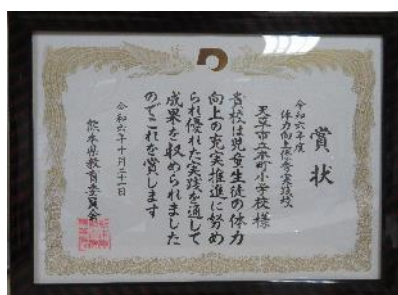 賞状
令和六年度
体力向上優秀実践校
天草市立本町小学校様
貴校は児童生徒の体力
向上の充実推進に努め
られ優れた実践を通して
成果を収められました
のでこれを賞します
令和六年十月二十一日
熊本県教育委員会